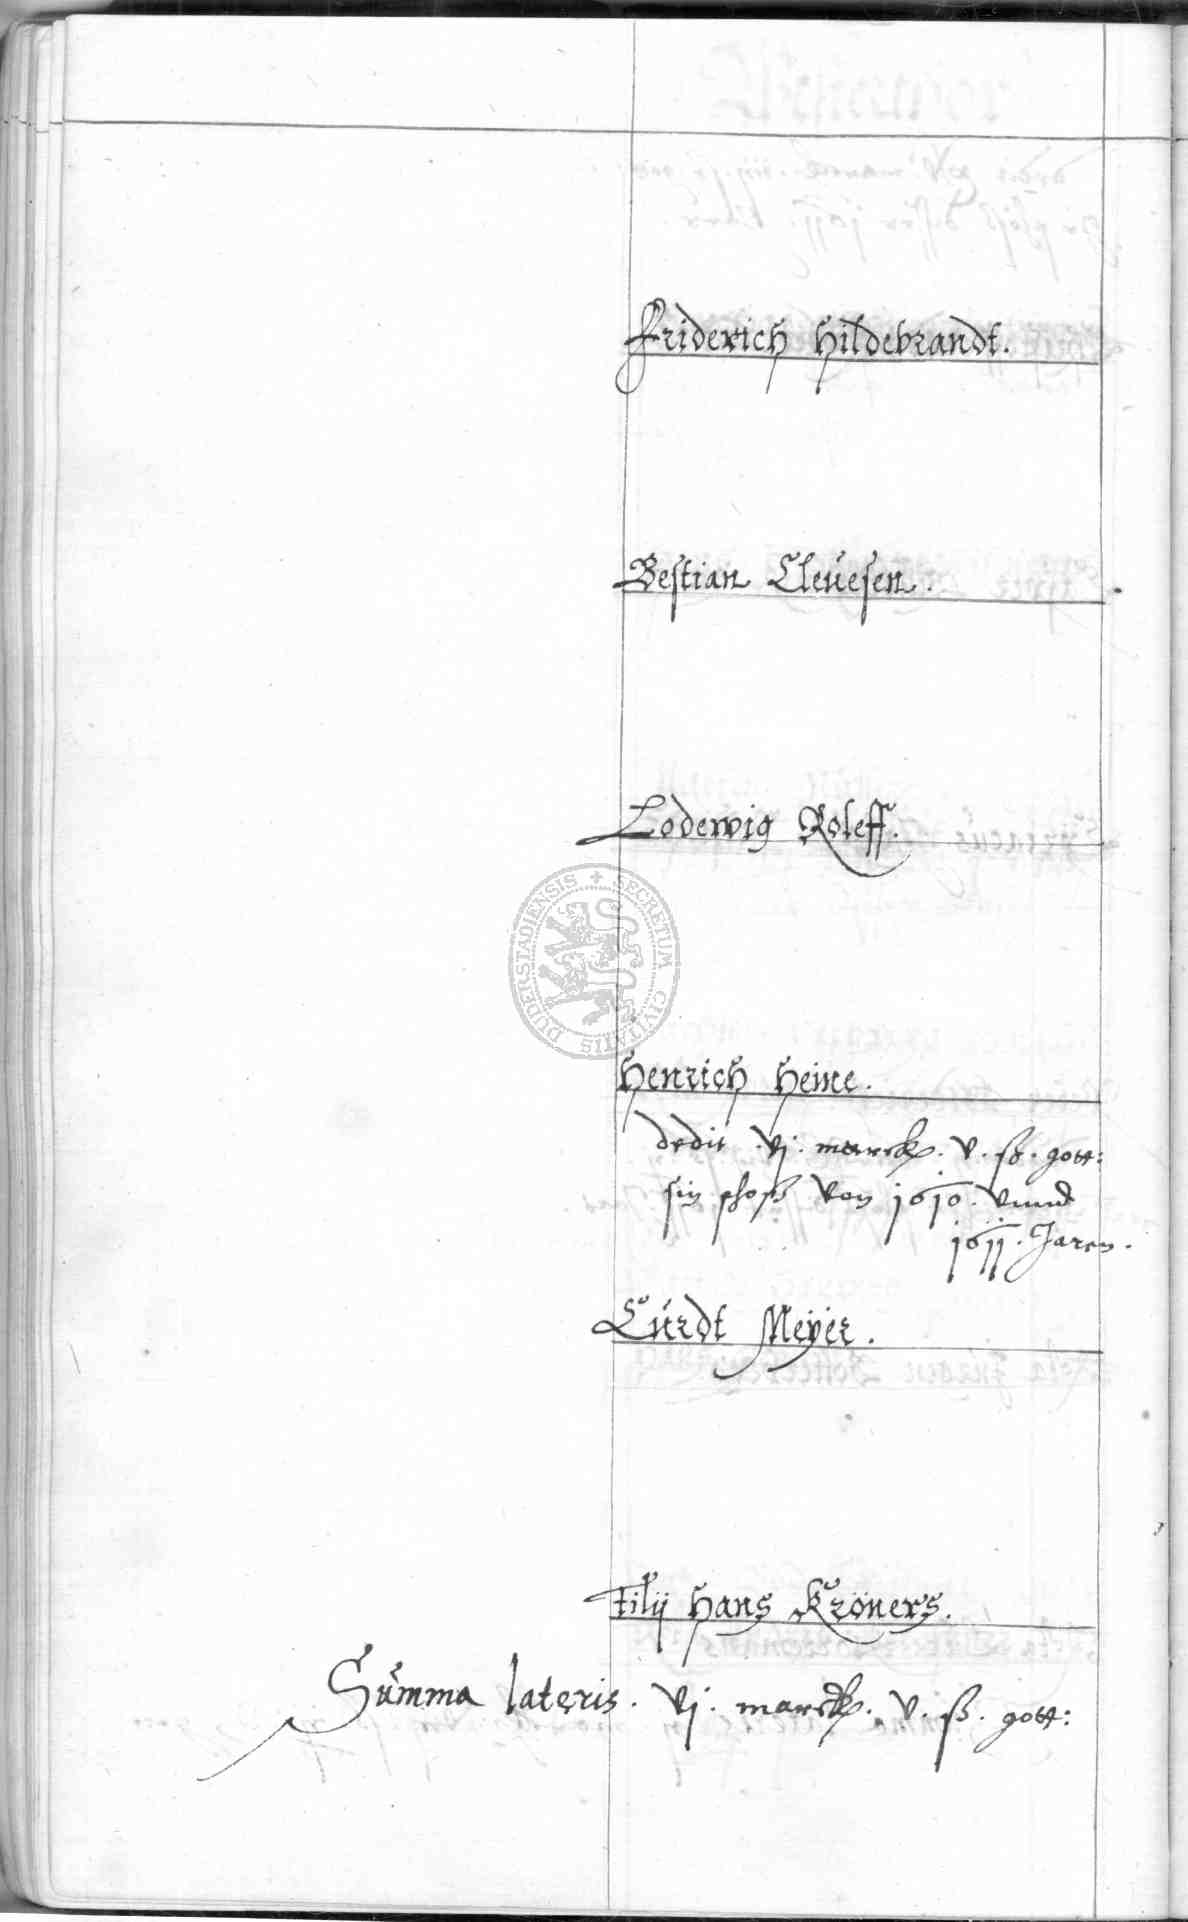 Friderich Hildebrandt.
Bestian Cleuesen.
Lodewig Roleff.
SECRETUM CIVITATIS DUDERSTADIENSIS
Henrich Heine.
dedit . vj . marck . v . ß . gott:
sin schoß von 1610 . vnnd
1611 . Jaren .
Curdt Meyer .
Filij Hans Kröners .
Summa lateris . vj . marck . v . ß . gott: